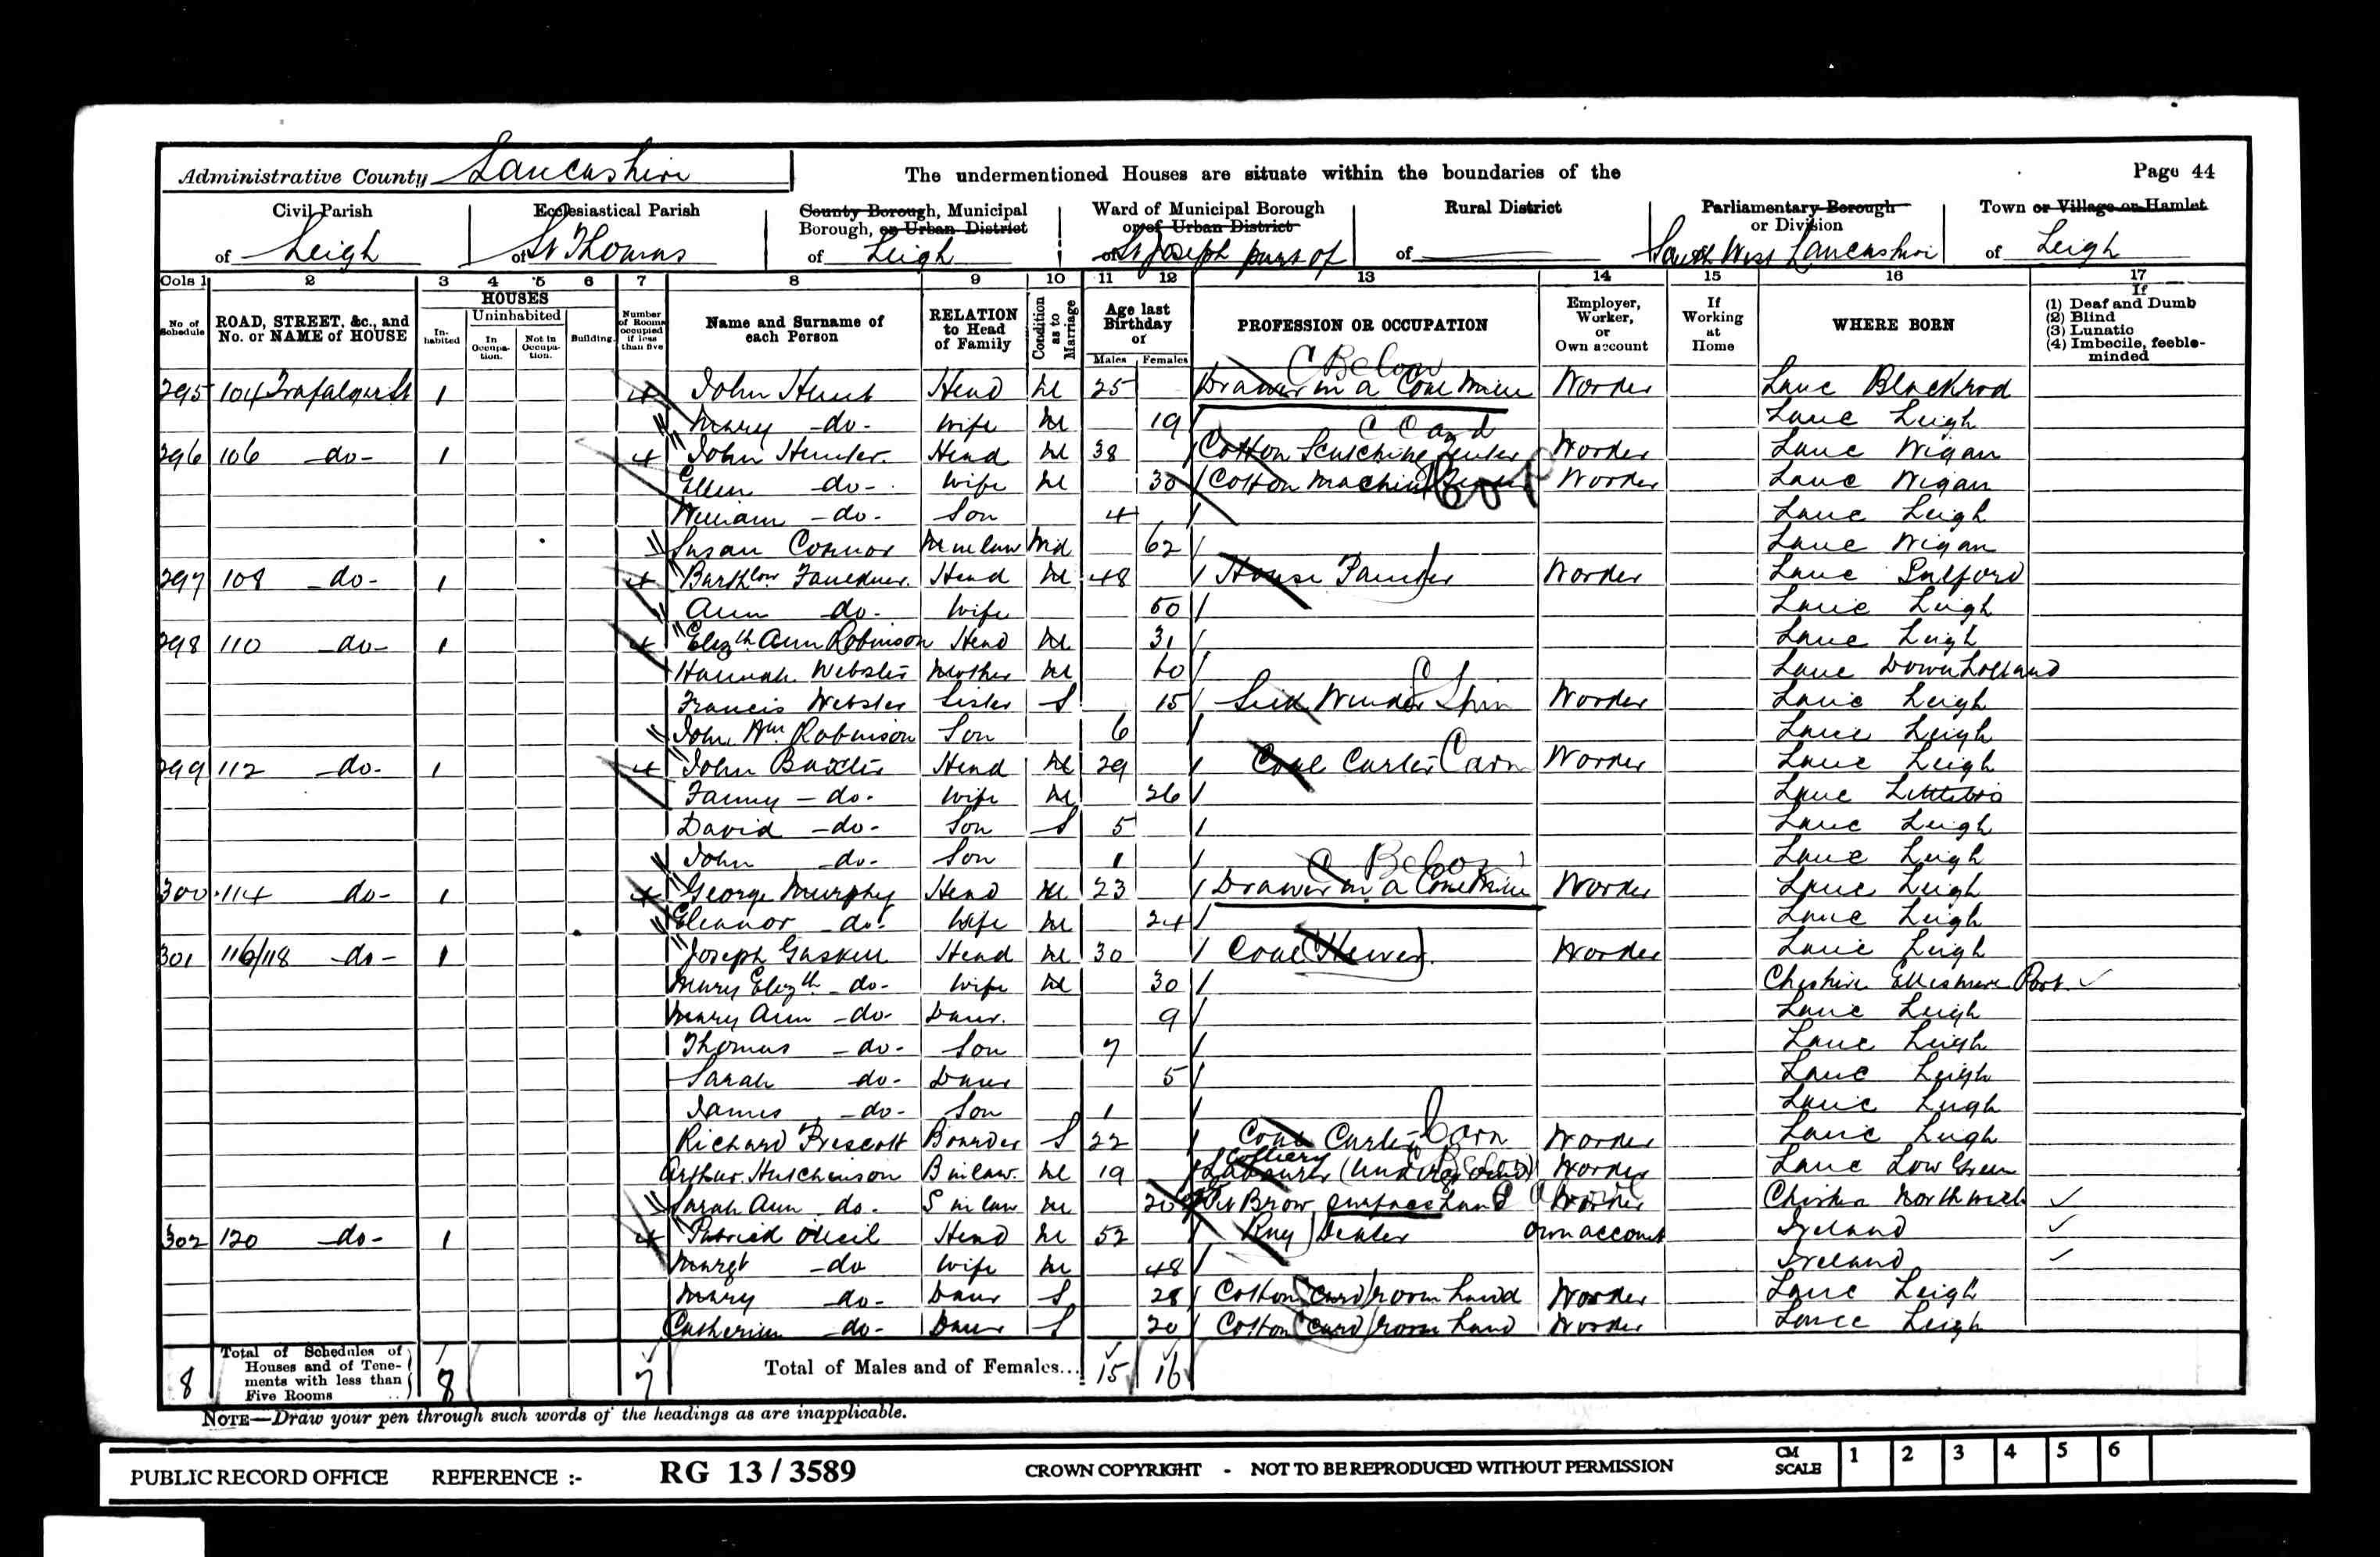 Administrative County Lancashire
The undermentioned Houses are situate within the boundaries of the
Page 44
Civil Parish of Leigh
Ecclesiastical Parish of St Thomas
County Borough, Municipal Borough, or Urban District of Leigh
Ward of Municipal Borough or of Urban District of St Joseph part of
Rural District of
Parliamentary Borough or Division South West Lancashire
Town or Village or Hamlet of Leigh
Cols 1 2 3 4 5 6 7 8 9 10 11 12 13 14 15 16 17
No. of Schedule
ROAD, STREET, &c., and No. or NAME of HOUSE
HOUSES
Inhabited
Uninhabited
In Occupation.
Not in Occupation.
Building.
Number of Rooms occupied if less than five
Name and Surname of each Person
RELATION to Head of Family
Condition as to Marriage
Age last Birthday of
Males Females
PROFESSION OR OCCUPATION
Employer, Worker, or Own account
If Working at Home
WHERE BORN
If
(1) Deaf and Dumb
(2) Blind
(3) Lunatic
(4) Imbecile, feeble-minded
C Below
295 104 Trafalgar St 1 4 John Hunt Head M 25 Drawer in a Coal Mine Worker Lanc Blackrod
Mary -do- Wife M 19 Lanc Leigh
C Card
296 106 -do- 1 4 John Hunter Head M 38 Cotton Scutching Tenter Worker Lanc Wigan
Ellen -do- Wife M 30 Cotton Machine Worker Lanc Wigan
William -do- Son 4 Lanc Leigh
Susan Connor M in law Wid 62 Lanc Wigan
297 108 -do- 1 4 Barthlow Faulkner Head M 48 House Painter Worker Lanc Salford
Ann -do- Wife 50 Lanc Leigh
298 110 -do- 1 4 Elizth Ann Robinson Head M 31 Lanc Leigh
Hannah Webster Mother M 60 Lanc Down Holland
Francis Webster Sister S 15 Silk Winder C Spin Worker Lanc Leigh
John Wm Robinson Son 6 Lanc Leigh
299 112 -do- 1 4 John Baxter Head M 29 Coal Carter Carn Worker Lanc Leigh
Fanny -do- Wife M 26 Lanc
David -do- Son S 5 Lanc Leigh
John -do- Son 1 Lanc Leigh
C Below
300 114 do- 1 4 George Murphy Head M 23 Drawer in a Coal Mine Worker Lanc Leigh
Eleanor do- Wife M 24 Lanc Leigh
301 116/118 -do- 1 Joseph Gaskell Head M 30 Coal Hewer Worker Lanc Leigh
Mary Elizth -do- Wife M 30 Cheshire Ellesmere Port
Mary Ann -do- Daur. 9 Lanc Leigh
Thomas -do- Son 7 Lanc Leigh
Sarah do- Daur 5 Lanc Leigh
James -do- Son 1 Lanc Leigh
Richard Prescott Boarder S 22 Coal Carter Carn Worker Lanc Leigh
Arthur Hutchinson B in law. M 19 Colliery Labourer (Underground) Worker Lanc Low Green
Sarah Ann do. S in law M 20 Pit Brow surface hand Worker Cheshire Northwich
302 120 -do- 1 4 Patrick O'Neil Head M 52 Rag Dealer own account Ireland
Margt -do Wife M 48 Ireland
Mary do- Daur S 28 Cotton Card room hand Worker Lanc Leigh
Catherine -do- Daur S 20 Cotton Card room hand Worker Lanc Leigh
8 Total of Schedules of Houses and of Tenements with less than Five Rooms 8 7 Total of Males and of Females... 15 16
NOTE—Draw your pen through such words of the headings as are inapplicable.
PUBLIC RECORD OFFICE REFERENCE :- RG 13 / 3589 CROWN COPYRIGHT - NOT TO BE REPRODUCED WITHOUT PERMISSION CM SCALE 1 2 3 4 5 6